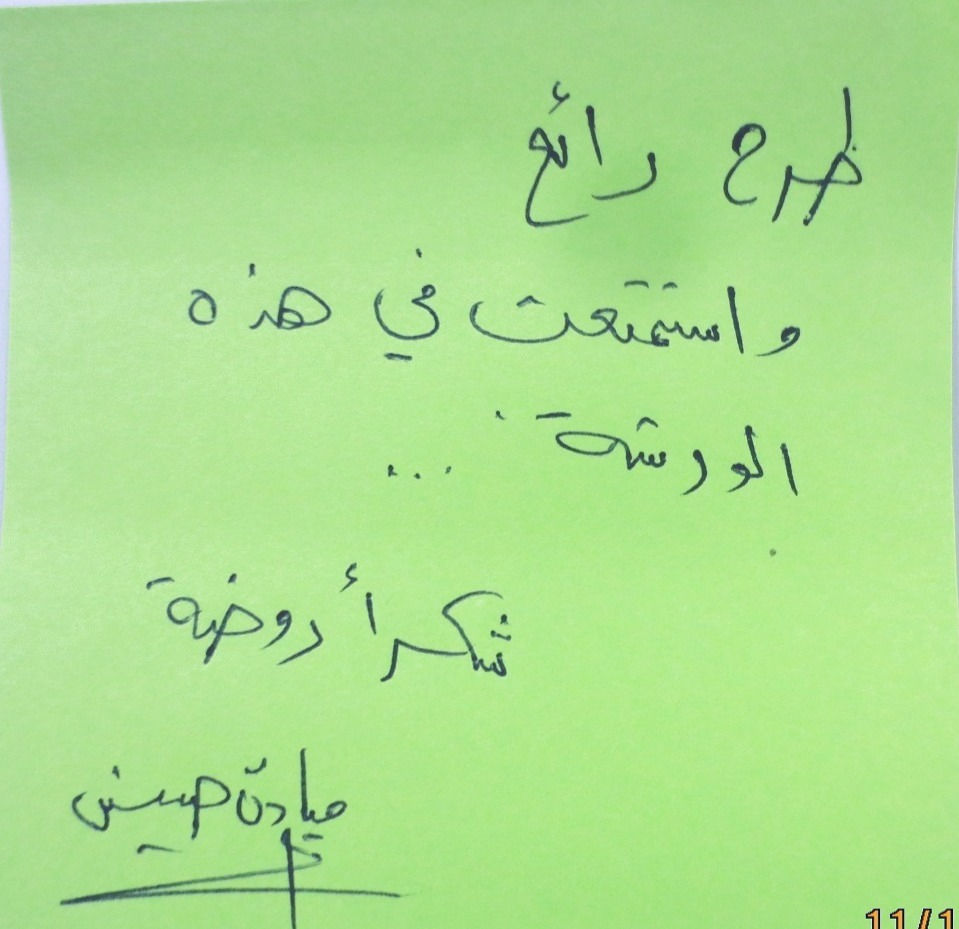 طرح رائع
واستمتعت في هذه
الورشة ...
شكراً روضة
ميادة حسين
11/1